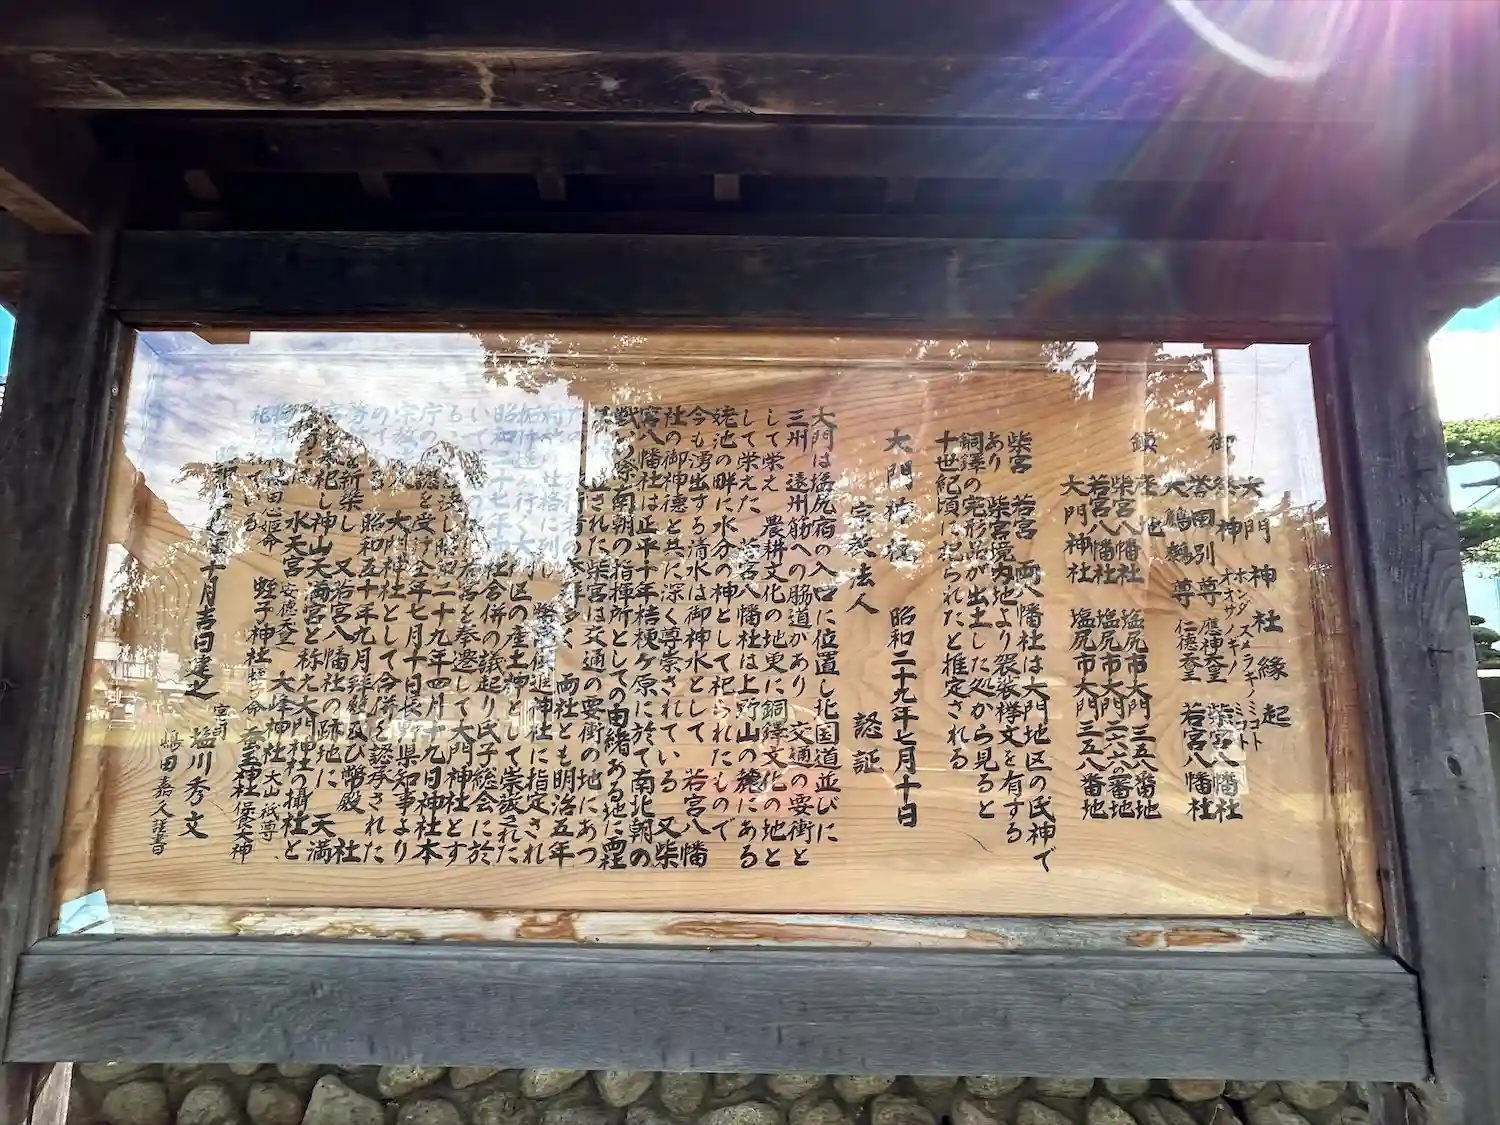 大門神社縁起
御祭神
誉田別尊 応神天皇 柴宮八幡社
ホンダスメラギノミコト
大鷦鷯尊 仁徳天皇 若宮八幡社
オオサザギノミコト
鎮座地
柴宮八幡社 塩尻市大門三五八番地
若宮八幡社 塩尻市大門六六番地
大門神社 塩尻市大門三五八番地
柴宮 若宮 両八幡社は大門地区の氏神で
あり 柴宮境内地より袈裟襷文を有する
銅鐸の完形品が出土した処から見ると
十世紀頃に祀られたと推定される
大門神社 昭和二十九年七月十日
宗教法人 認証
大門は塩尻宿の入口に位置し北国道並びに
三州 遠州筋への脇道があり 交通の要衝と
して栄え 農耕文化の地更に銅鐸文化の地と
して栄えた 若宮八幡社は上野山の麓にある
姥池の畔に水分の神として祀られたもので
今も湧出する清水は御神水として 若宮八幡
社の御神徳と共に深く尊崇されている 又柴
宮八幡社は正平十年桔梗ヶ原に於て南北朝の
戦いの際南朝の指揮所としての由緒ある地に両社
された柴宮は交通の要衝の地にあつ
両社とも明治五年
幣帛供進神社に指定され
区の産土神として崇敬された
合併の議起り氏子総会に於
いて 若宮を奉遷して大門神社とす
る 決し昭和二十九年四月十九日神社本
庁の承認を受け全年七月十日長野県知事より
宗教 大門神社として合併を認承された
昭和五十年九月拝殿及び幣殿 社
を新築し 又若宮八幡社の跡地に 天満
宮を祀し神山天満宮と称え大門神社の摂社と
水天宮 安徳天皇 大峰神社 大山祇尊
蛭子神社 蛭子命 蚕玉神社 保食大神
十月吉日建之 宮司 塩川秀文
嶋田嘉久謹書